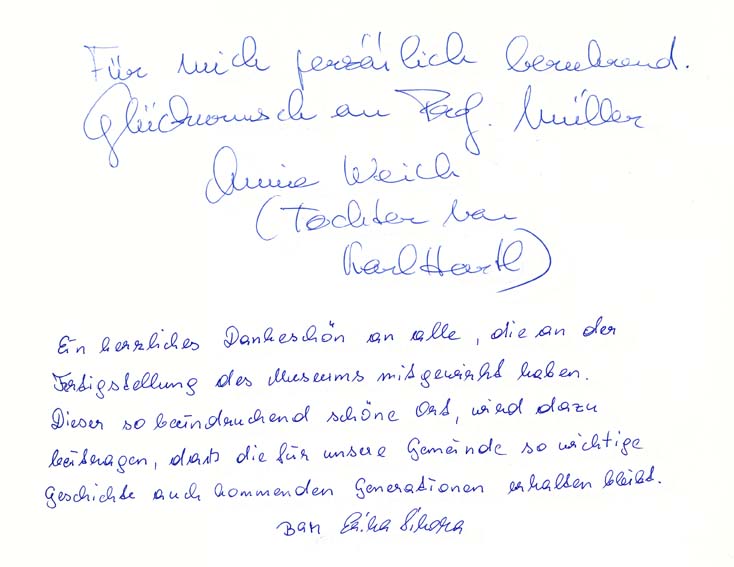 Für mich persönlich berührend.
Glückwunsch an Prof. Müller
Weich
(Tochter von
Karl Hartl)
Ein herzliches Dankeschön an alle, die an der
Fertigstellung des Museums mitgewirkt haben.
Dieser so beeindruckend schöne Ort, wird dazu
beitragen, daß die für unsere Gemeinde so wichtige
Geschichte auch kommenden Generationen erhalten bleibt.
Erika Sikora